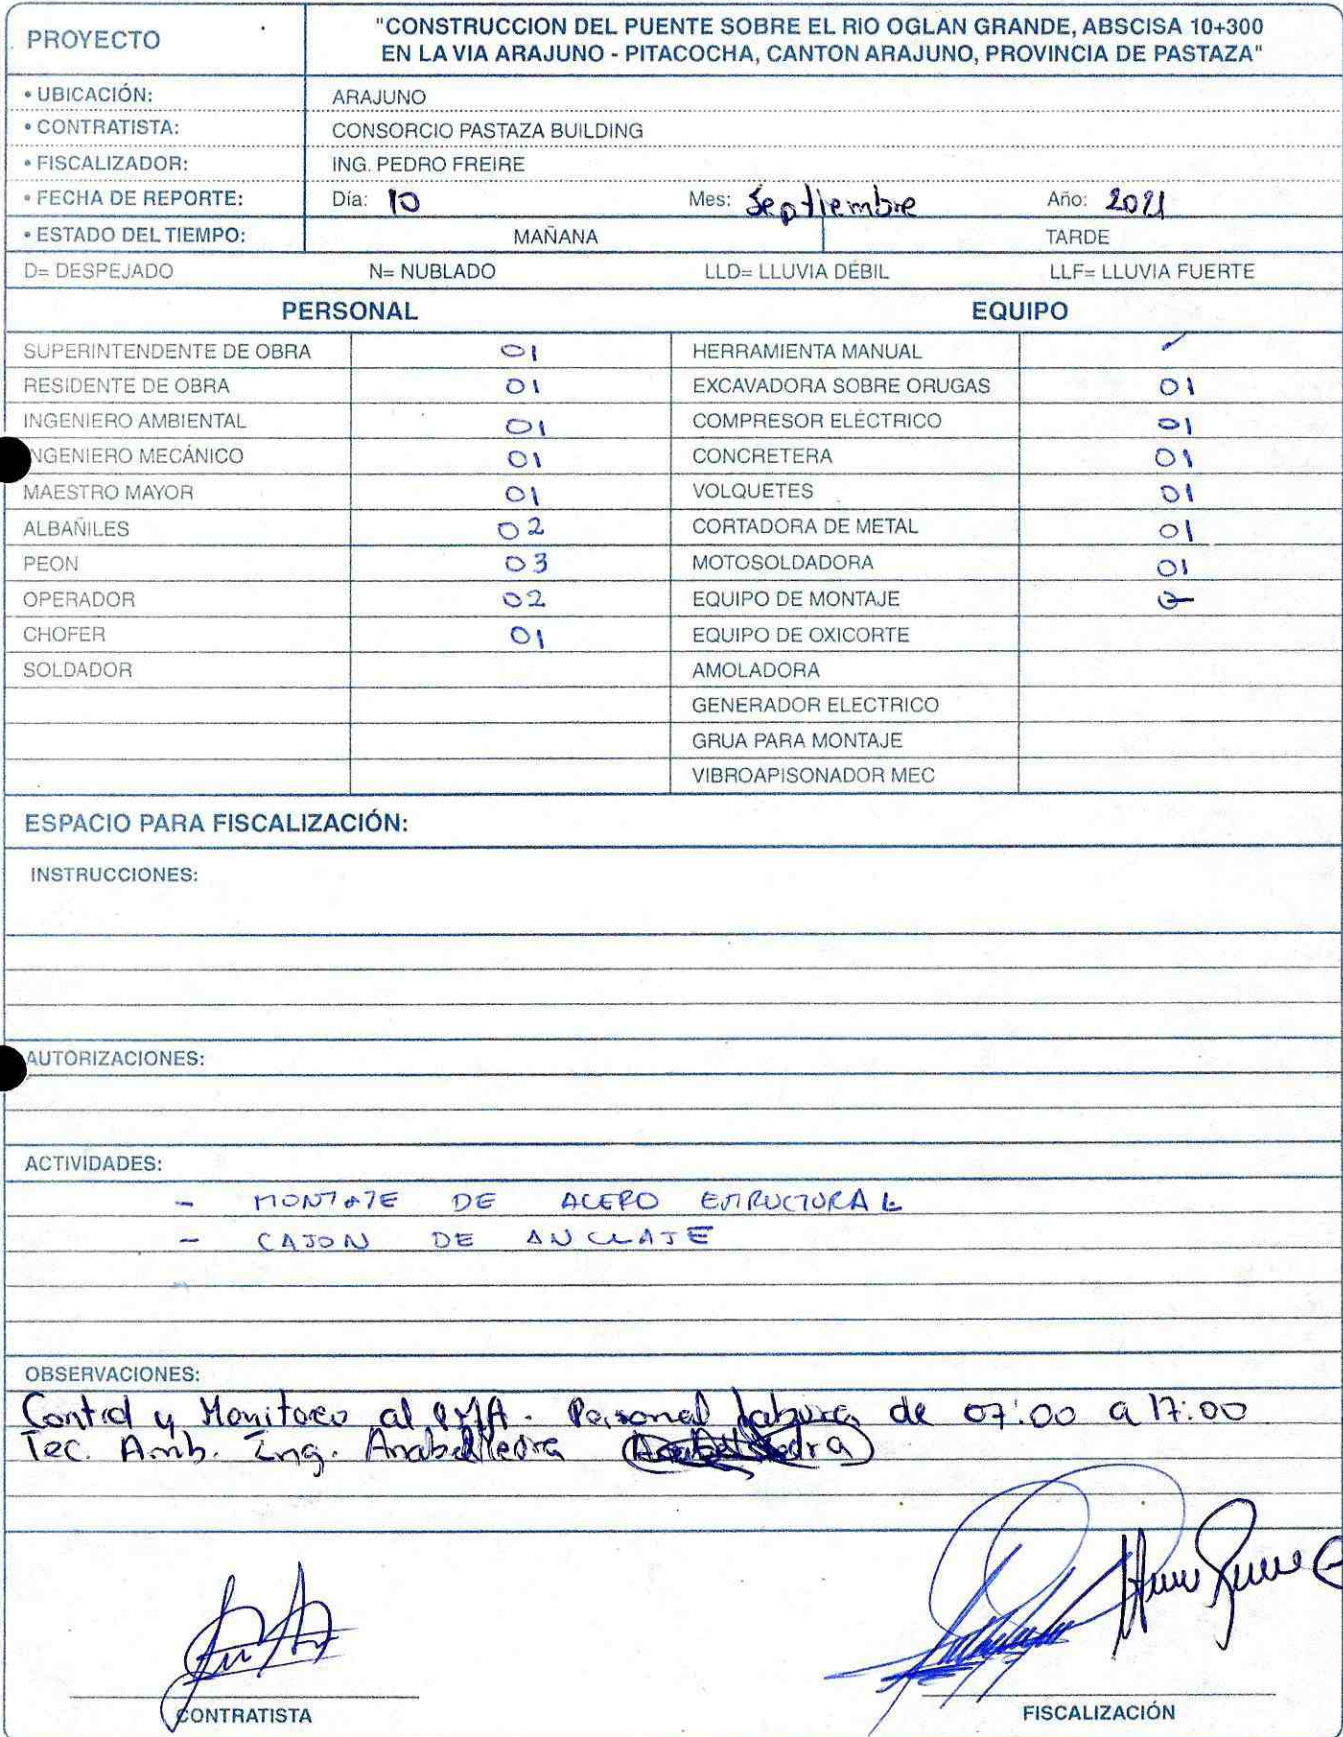 PROYECTO
"CONSTRUCCION DEL PUENTE SOBRE EL RIO OGLAN GRANDE, ABSCISA 10+300
EN LA VIA ARAJUNO - PITACOCHA, CANTON ARAJUNO, PROVINCIA DE PASTAZA"
• UBICACIÓN: ARAJUNO
• CONTRATISTA: CONSORCIO PASTAZA BUILDING
• FISCALIZADOR: ING. PEDRO FREIRE
• FECHA DE REPORTE: Día: 10 Mes: Septiembre Año: 2021
• ESTADO DEL TIEMPO: MAÑANA TARDE
D= DESPEJADO N= NUBLADO LLD= LLUVIA DÉBIL LLF= LLUVIA FUERTE
PERSONAL EQUIPO
SUPERINTENDENTE DE OBRA 01 HERRAMIENTA MANUAL
RESIDENTE DE OBRA 01 EXCAVADORA SOBRE ORUGAS 01
INGENIERO AMBIENTAL 01 COMPRESOR ELÉCTRICO 01
NGENIERO MECÁNICO 01 CONCRETERA 01
MAESTRO MAYOR 01 VOLQUETES 01
ALBAÑILES 02 CORTADORA DE METAL 01
PEON 03 MOTOSOLDADORA 01
OPERADOR 02 EQUIPO DE MONTAJE
CHOFER 01 EQUIPO DE OXICORTE
SOLDADOR AMOLADORA
GENERADOR ELECTRICO
GRUA PARA MONTAJE
VIBROAPISONADOR MEC
ESPACIO PARA FISCALIZACIÓN:
INSTRUCCIONES:
AUTORIZACIONES:
ACTIVIDADES:
- MONTAJE DE ACERO ESTRUCTURAL
- CAJON DE ANCLAJE
OBSERVACIONES:
Control y Monitoreo al PMA. Personal labora de 07:00 a 17:00
Tec. Amb. Ing.
CONTRATISTA FISCALIZACIÓN